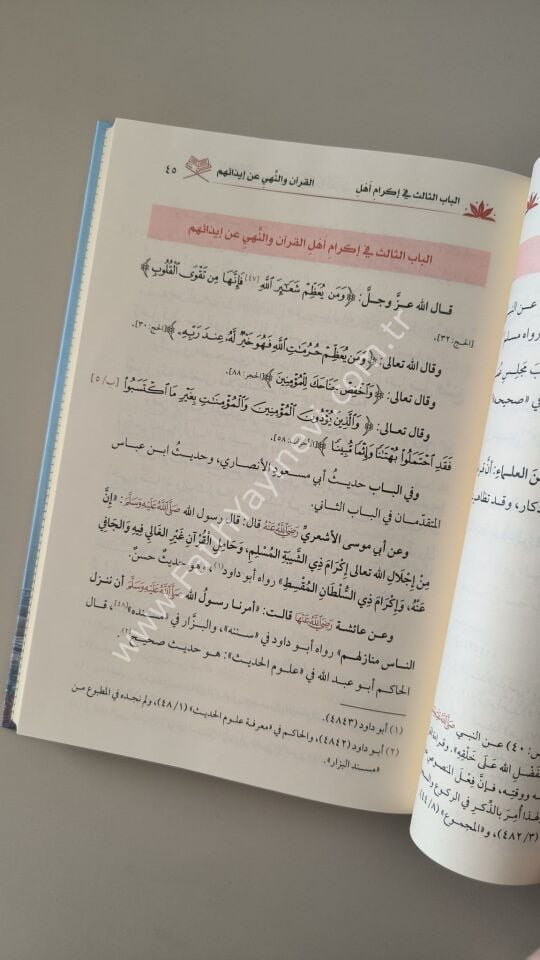 الباب الثالث في إكرام أهل القرآن والنهي عن إيذائهم ٤٥
الباب الثالث في إكرام أهل القرآن والنهي عن إيذائهم
قال الله عزَّ وجلَّ: ﴿وَمَن يُعَظِّمْ شَعَائِرَ اللَّهِ [٤٧] فَإِنَّهَا مِن تَقْوَى الْقُلُوبِ﴾
[الحج: ٣٢].
وقال الله تعالى: ﴿وَمَن يُعَظِّمْ حُرُمَاتِ اللَّهِ فَهُوَ خَيْرٌ لَّهُ عِندَ رَبِّهِ﴾ [الحج: ٣٠].
وقال تعالى: ﴿وَاخْفِضْ جَنَاحَكَ لِلْمُؤْمِنِينَ﴾ [الحجر: ٨٨].
وقال تعالى: ﴿وَالَّذِينَ يُؤْذُونَ الْمُؤْمِنِينَ وَالْمُؤْمِنَاتِ بِغَيْرِ مَا اكْتَسَبُوا [ب/٥]
فَقَدِ احْتَمَلُوا بُهْتَانًا وَإِثْمًا مُّبِينًا﴾ [الأحزاب: ٥٨].
وفي الباب حديثُ أبي مسعودٍ الأنصاري، وحديثُ ابن عباس
المتقدّمان في الباب الثاني.
وعن أبي موسى الأشعريِّ رَضِيَ اللَّهُ عَنْهُ قال: قال رسول الله صَلَّى اللَّهُ عَلَيْهِ وَسَلَّمَ: «إنَّ
مِنْ إجلالِ الله تعالى إكرامَ ذي الشَّيبةِ المُسْلِمِ، وَحَامِلِ القُرْآنِ غَيْرِ الغَالي فِيهِ وَالجَافي
عَنْهُ، وَإكرامَ ذِي السُّلْطَانِ المُقْسِطِ» رواه أبو داود(١)، وهو حديثٌ حسنٌ.
وعن عائشة رَضِيَ اللَّهُ عَنْهَا قالت: «أمرنا رسولُ الله صَلَّى اللَّهُ عَلَيْهِ وَسَلَّمَ أن ننزل
الناس منازلهم» رواه أبو داود في «سننه»، والبزَّار في «مسنده» [٤٨]، قال
الحاكم أبو عبد الله في «علوم الحديث»: هو حديث صحيح(٢).
(١) أبو داود (٤٨٤٣).
(٢) أبو داود (٤٨٤٢)، والحاكم في «معرفة علوم الحديث» (٤٨/١)، ولم نجده في المطبوع من
«مسند البزار».
www.FouraYayinevi.com.tr
عن النبي
رواه مسلم
صحيحه
العلماء
(٤٠) عن النبي صَلَّى اللَّهُ
الله عَلَى خَلْقِهِ
ووقته، فإنَّ فِعْلَ المنصوص
أُمِرَ بالذِّكر في الركوع
(٤٨٢/٣)، و«المجموع» (٤٤/٨)